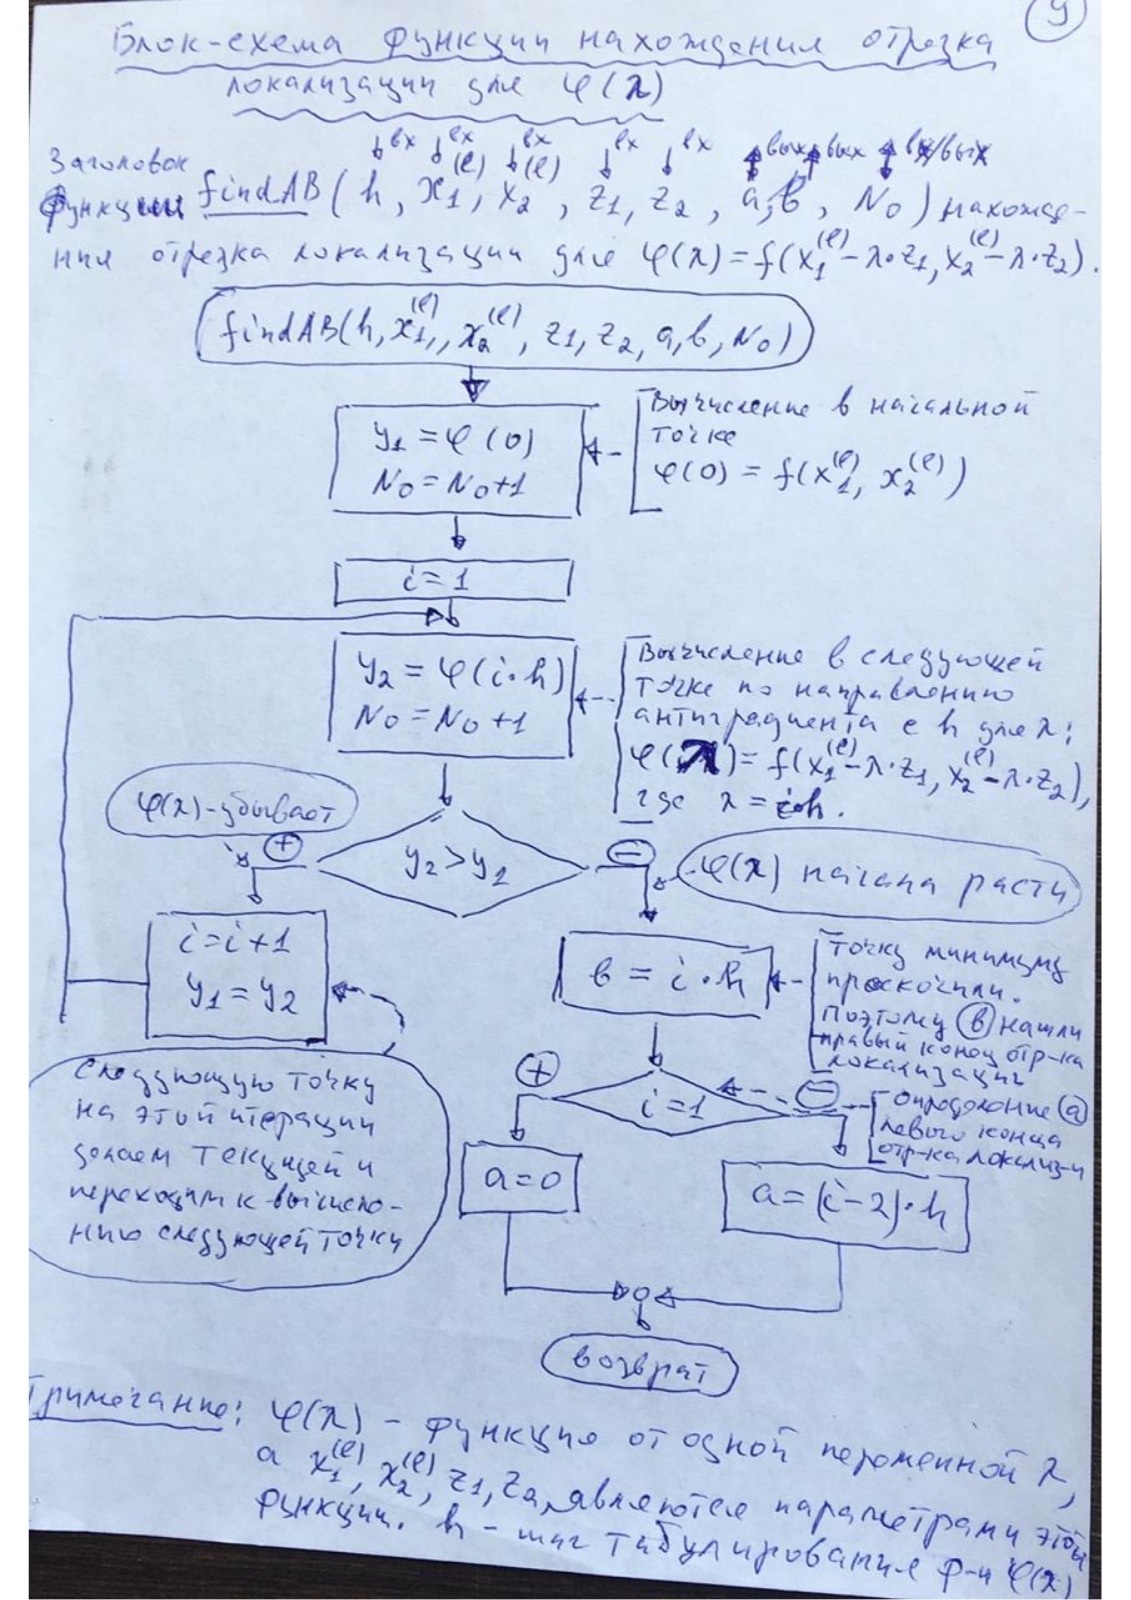 9
Блок-схема функции нахождения отрезка
локализации для φ(λ)
↓вх ↓вх ↓вх ↓вх ↓вх ↑вых ↑вых ↕вх/вых
Заголовок
функции findAB(h, x₁⁽ˡ⁾, x₂⁽ˡ⁾, z₁, z₂, a, b, N₀) нахожде-
ния отрезка локализации для φ(λ)=f(x₁⁽ˡ⁾-λ·z₁, x₂⁽ˡ⁾-λ·z₂).
findAB(h, x₁⁽ˡ⁾, x₂⁽ˡ⁾, z₁, z₂, a, b, N₀)
y₁=φ(0)
N₀=N₀+1
Вычисление в начальной
точке
φ(0)=f(x₁⁽ˡ⁾, x₂⁽ˡ⁾)
i=1
y₂=φ(i·h)
N₀=N₀+1
Вычисление в следующей
точке по направлению
антиградиента с h для λ:
φ(λ)=f(x₁⁽ˡ⁾-λ·z₁, x₂⁽ˡ⁾-λ·z₂),
где λ=i·h.
φ(λ)-убывает
+
y₂>y₁
−
φ(λ) начала расти
i=i+1
y₁=y₂
b=i·h
точку минимума
проскочили.
Поэтому b нашли
правый конец отр-ка
локализации
Следующую точку
на этой итерации
делаем текущей и
переходим к вычисле-
нию следующей точки
+
i=1
−
определение a
левого конца
отр-ка локализ-и
a=0
a=(i-2)·h
возврат
Примечание: φ(λ) - функция от одной переменной λ,
а x₁⁽ˡ⁾, x₂⁽ˡ⁾, z₁, z₂, являются параметрами этой
функции. h - шаг табулирования ф-и φ(λ)